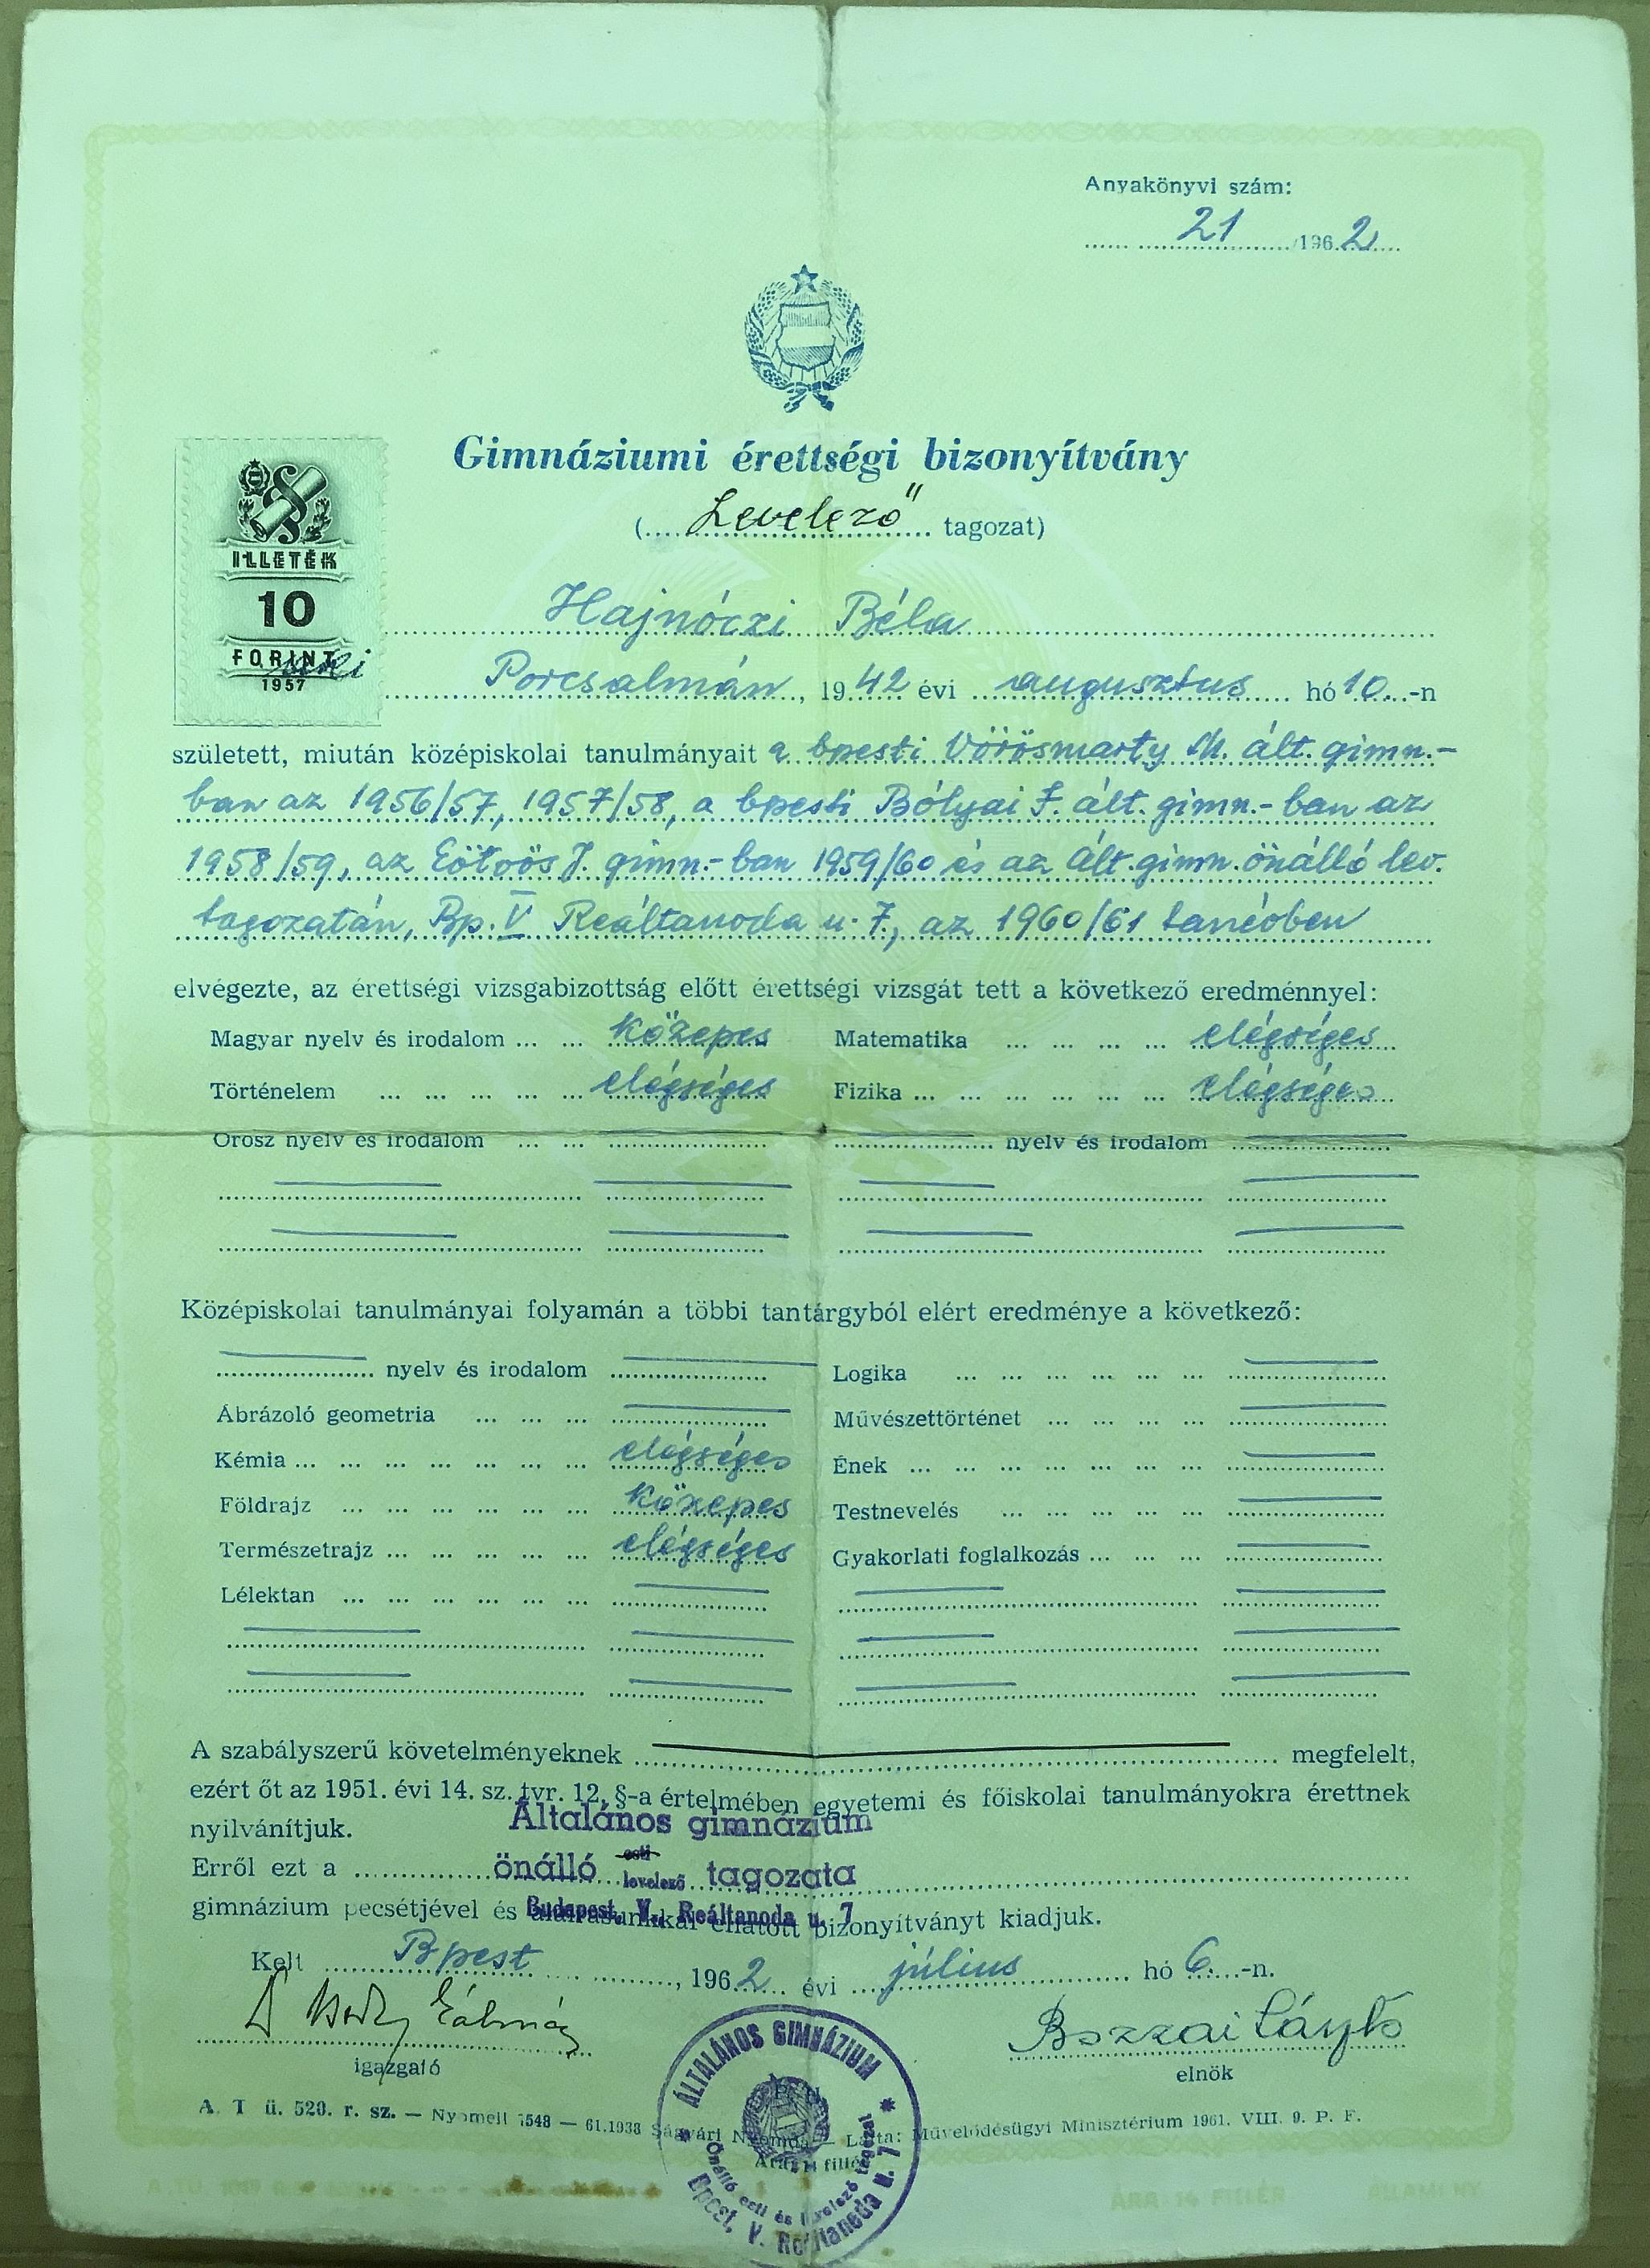 Anyakönyvi szám:
21 /1962
Gimnáziumi érettségi bizonyítvány
(Levelező tagozat)
ILLETÉK
10
FORINT
1957
Hajnóczi Béla
Porcsalmán, 1942 évi augusztus hó 10-n
született, miután középiskolai tanulmányait a bpesti Vörösmarty M. ált. gimn.-
ban az 1956/57, 1957/58, a bpesti Bólyai F. ált. gimn.-ban az
1958/59, az Eötvös J. gimn.-ban 1959/60 és az ált. gimn. önálló lev.
tagozatán, Bp. V Reáltanoda u. 7., az 1960/61 tanévben
elvégezte, az érettségi vizsgabizottság előtt érettségi vizsgát tett a következő eredménnyel:
Magyar nyelv és irodalom ... ... közepes Matematika ... ... ... ... elégséges
Történelem ... ... ... ... ... elégséges Fizika ... ... ... ... ... ... elégséges
Orosz nyelv és irodalom ... ... nyelv és irodalom
Középiskolai tanulmányai folyamán a többi tantárgyból elért eredménye a következő:
nyelv és irodalom Logika ... ... ... ... ... ...
Ábrázoló geometria ... ... ... Művészettörténet ... ... ... ...
Kémia ... ... ... ... ... ... ... elégséges Ének ... ... ... ... ... ... ...
Földrajz ... ... ... ... ... ... közepes Testnevelés ... ... ... ... ...
Természetrajz ... ... ... ... ... elégséges Gyakorlati foglalkozás ... ... ...
Lélektan ... ... ... ... ... ...
A szabályszerű követelményeknek megfelelt,
ezért őt az 1951. évi 14. sz. tvr. 12. §-a értelmében egyetemi és főiskolai tanulmányokra érettnek
nyilvánítjuk.
Általános gimnázium
Erről ezt a önálló esti levelező tagozata
gimnázium pecsétjével és aláírásunkkal ellátott bizonyítványt kiadjuk.
Budapest, V., Reáltanoda u. 7
Kelt Bpest, 1962 évi július hó 6-n.
Kálmán
Bozzai László
igazgató
elnök
A. T ü. 520. r. sz. — Nyomell 1548 — 61.1938 Ságvári Nyomda — Látta: Művelődésügyi Minisztérium 1961. VIII. 9. P. F.
ÁLTALÁNOS GIMNÁZIUM
Önálló esti és levelező tagozat
Bpest, V. Reáltanoda u. 7
ÁRA 14 FILLÉR